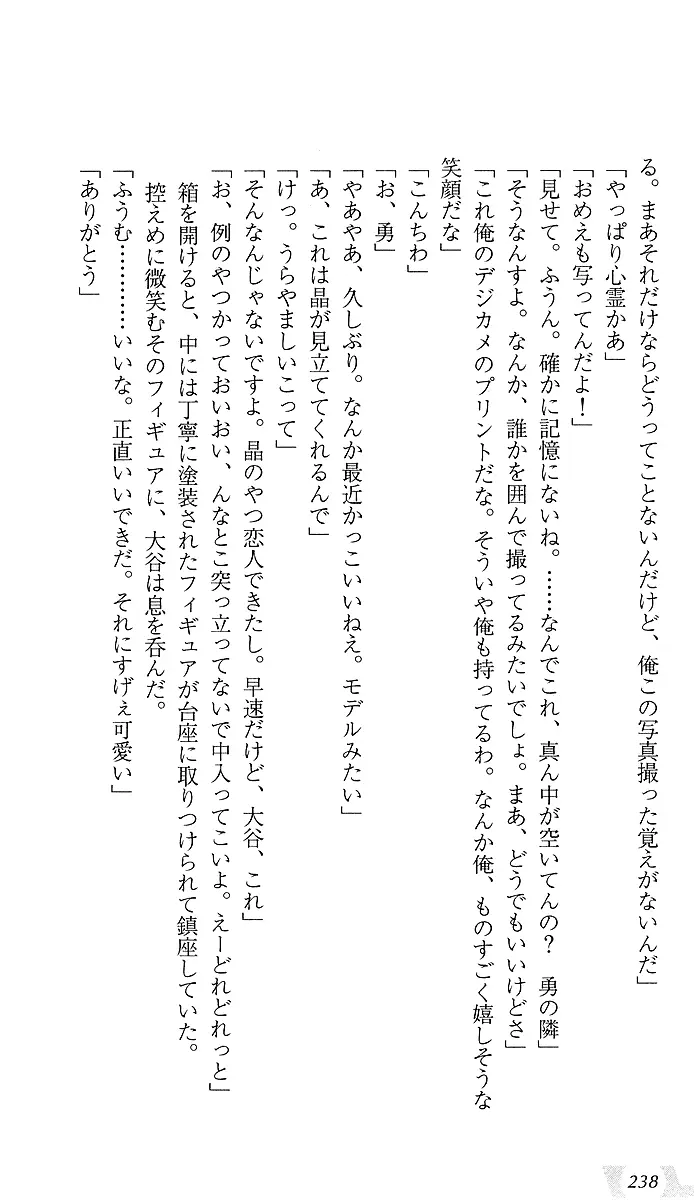 る。まあそれだけならどうってことないんだけど、俺この写真撮った覚えがないんだ」
「やっぱり心霊かあ」
「おめえも写ってんだよ！」
「見せて。ふうん。確かに記憶にないね。……なんでこれ、真ん中が空いてんの？　勇の隣」
「そうなんすよ。なんか、誰かを囲んで撮ってるみたいでしょ。まあ、どうでもいいけどさ」
「これ俺のデジカメのプリントだな。そういや俺も持ってるわ。なんか俺、ものすごく嬉しそうな
笑顔だな」
「こんちわ」
「お、勇」
「やあやあ、久しぶり。なんか最近かっこいいねえ。モデルみたい」
「あ、これは晶が見立ててくれるんで」
「けっ。うらやましいこって」
「そんなんじゃないですよ。晶のやつ恋人できたし。早速だけど、大谷、これ」
「お、例のやつかっておいおい、んなとこ突っ立ってないで中入ってこいよ。えーどれどれっと」
箱を開けると、中には丁寧に塗装されたフィギュアが台座に取りつけられて鎮座していた。
控えめに微笑むそのフィギュアに、大谷は息を呑んだ。
「ふうむ…………いいな。正直いいできだ。それにすげぇ可愛い」
「ありがとう」
238